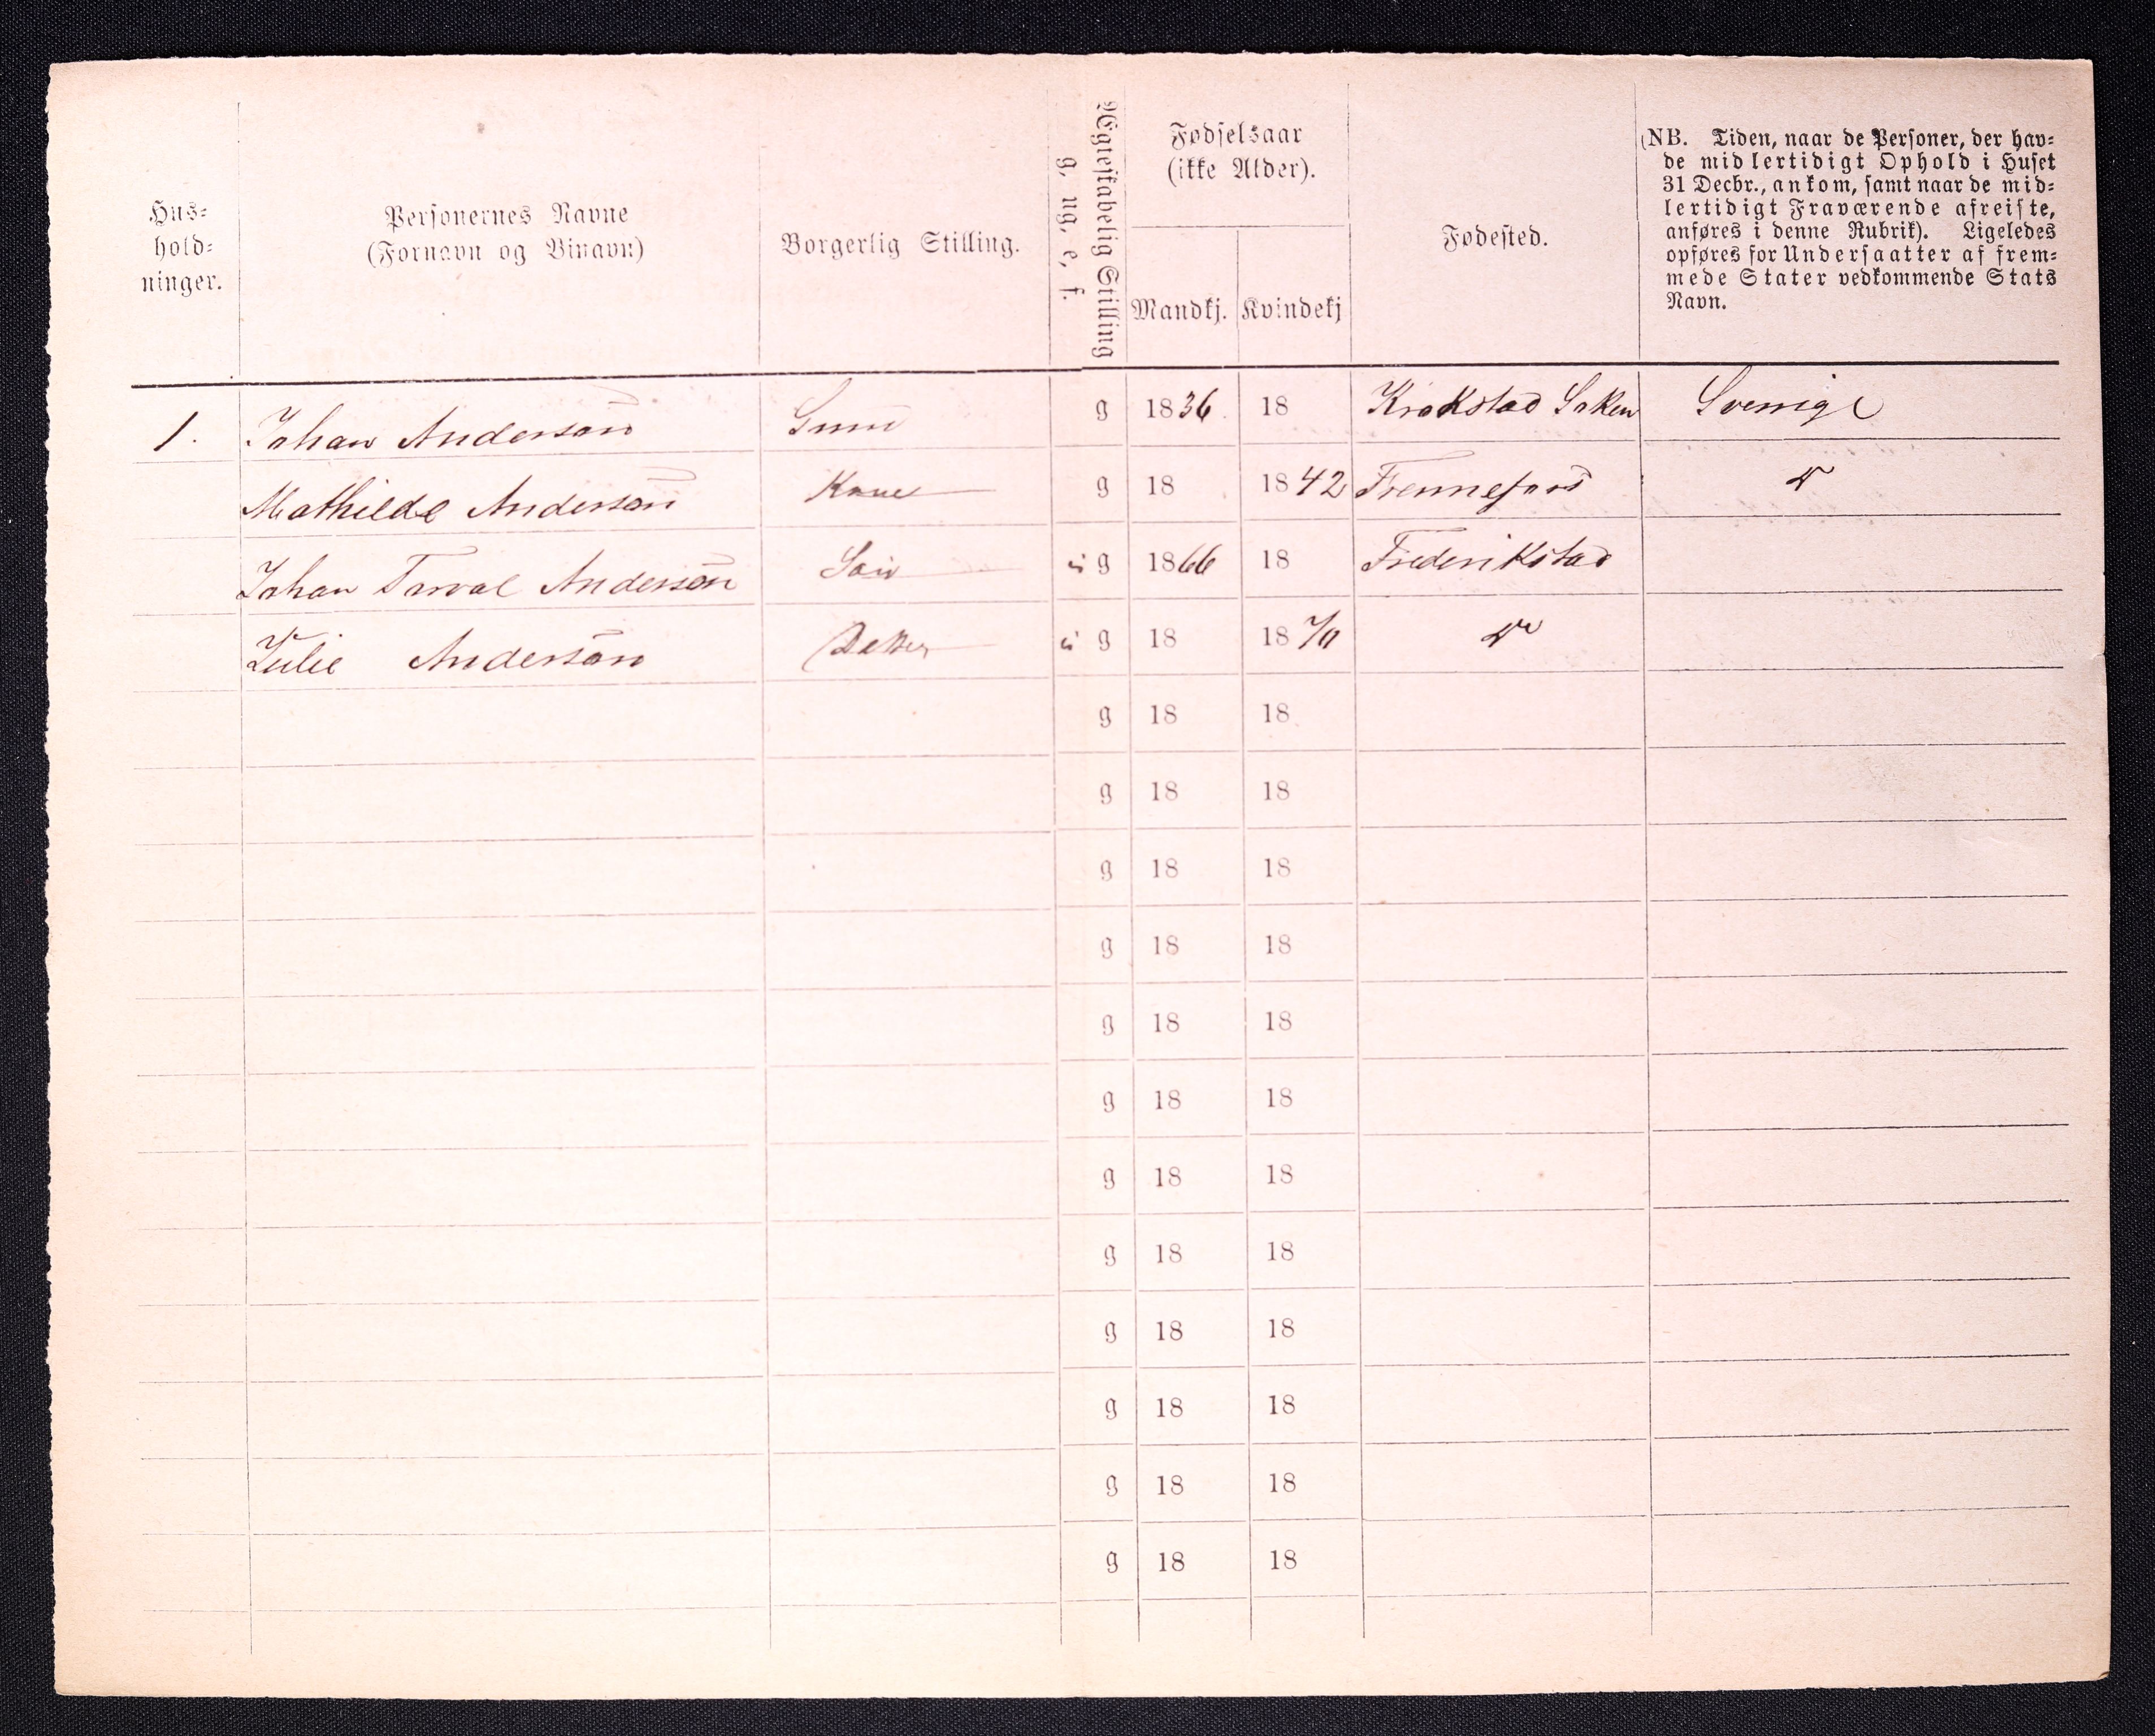 Hus-
hold-
ninger.
Personernes Navne
(Fornavn og Binavn)
Borgerlig Stilling.
Ægteskabelig Stilling
g, ug, e, f.
Fødselsaar
(ikke Alder).
Mandkj. Kvindekj
Fødested.
(NB. Tiden, naar de Personer, der hav-
de midlertidigt Ophold i Huset
31 Decbr., ankom, samt naar de mid-
lertidigt Fraværende afreiste,
anføres i denne Rubrik). Ligeledes
opføres for Undersaatter af frem-
mede Stater vedkommende Stats
Navn.
1. Johan Anderson g 1836. 18 Krokstad Soken Sverige
Mathilde Anderson Kone g 18 1842
Johan Torval Anderson Søn g 1866 18 Frederikstad
Julie Anderson g 18 1870
g 18 18
g 18 18
g 18 18
g 18 18
g 18 18
g 18 18
g 18 18
g 18 18
g 18 18
g 18 18
g 18 18
g 18 18